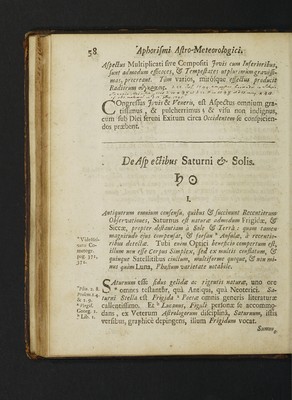 58. Aphorismi Astro-Meteorologici.
Aspectus Multiplicati sive Compositi Jovis cum Inferioribus,
sunt admodum efficaces, & Tempestates utplurimum gravissi-
mas, procreant. Tam varios, mitosque effectus producit
Radiorum
COngressus Jovis & Veneris, est Aspectus omnium gra-
tissimus, & pulcherrimus & visu non indignus,
cum sub Diei sereni Exitum circa Occidentem se conspicien-
dos præbent.
De Aspectibus Saturni & Solis.
♄ ☉
I.
Antiquorum omnium consensu, quibus & succinunt Recentiorum
Observationes, Saturnus est naturæ admodum Frigidæ, &
Siccæ, propter distantiam à Sole & Terra: quam tamen
magnitudo ejus compensat, & forsan Ansulæ, à recentio-
ribus detectæ. Tubi enim Optici beneficio compertum est,
illum non esse Corpus simplex, sed ex multis constatum, &
quinque Satellitibus cinctum, multiforme quoque, & non mi-
nus quàm Luna, Phasium varietate notabile.
SAturnum esse sidus gelidæ ac rigentis naturæ, uno ore
omnes testantur, quà Antiqui, quà Neoterici. Sa-
turni Stella est Frigida Poetæ omnis generis literaturæ
callentissimo. Et Lucanus, Figuli personæ se accommo-
dans, ex Veterum Astrologorum disciplinâ, Saturnum, istis
versibus, graphicè depingens, illum Frigidum vocat.
Summo
Cosmotheor.
pag. 371,
372.
Plin. 2. 8.
& 2. 9.
Virgil.
Georg. 1.
Lib. 1.